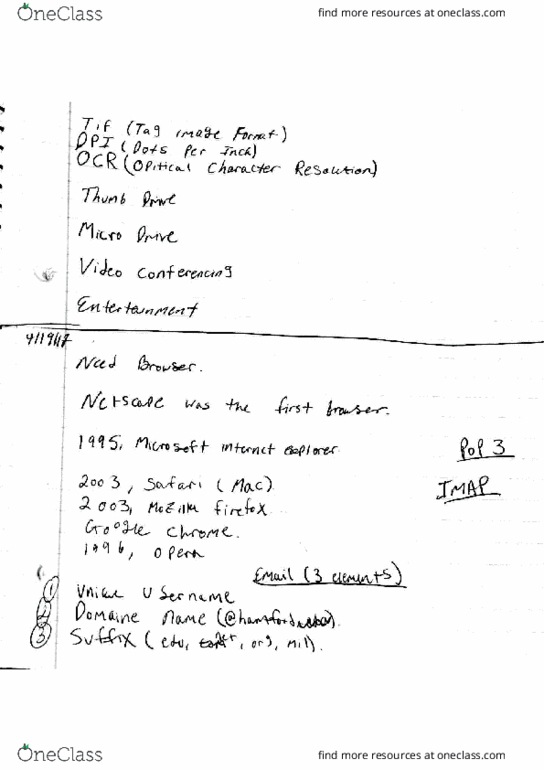 OneClass
find more resources at oneclass.com
Tif (Tag image Format)
DPI (Dots Per Inch)
OCR (Opitical Character Resolution)
Thumb Drive
Micro Drive
Video Conferencing
Entertainment
4/19/17
Need Browser.
Netscape was the first browser.
1995, Microsoft internet explorer
POP 3
2003, Safari (Mac)
IMAP
2003, Mozilla firefox
Google Chrome.
1996, Opera
Email (3 elements)
① Unique Username
② Domaine Name
③ Suffix (edu, org, mil).
OneClass
find more resources at oneclass.com